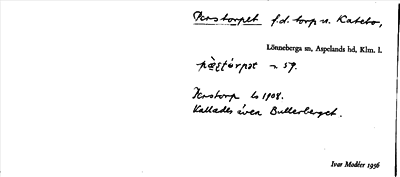 Perstorpet f.d. torp u. Katebo,
Lönneberga sn, Aspelands hd, Klm. l.
n. 59.
Perstorp ls 1908.
Kallades även Bullerberget.
Ivar Modéer 1936